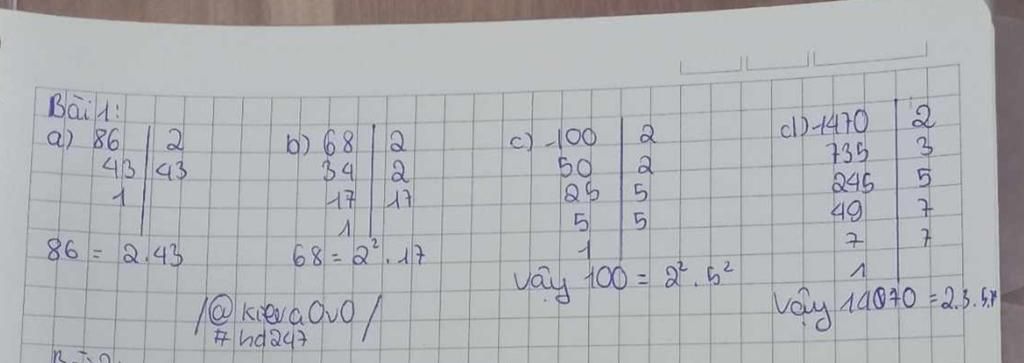 Bài 1:
a) 86 | 2
43 | 43
1 |
86 = 2.43
b) 68 | 2
34 | 2
17 | 17
1 |
68 = 2² . 17
c) 100 | 2
50 | 2
25 | 5
5 | 5
1 |
Vậy 100 = 2² . 5²
d) 1470 | 2
735 | 3
245 | 5
49 | 7
7 | 7
1 |
Vậy 14070 = 2.3.5.7
/@kieuaOvO/
#hd247